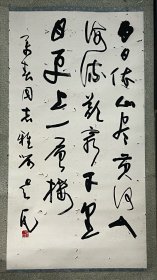 白日依山尽黄河入
海流欲窮千里
目更上一層樓
同志雅